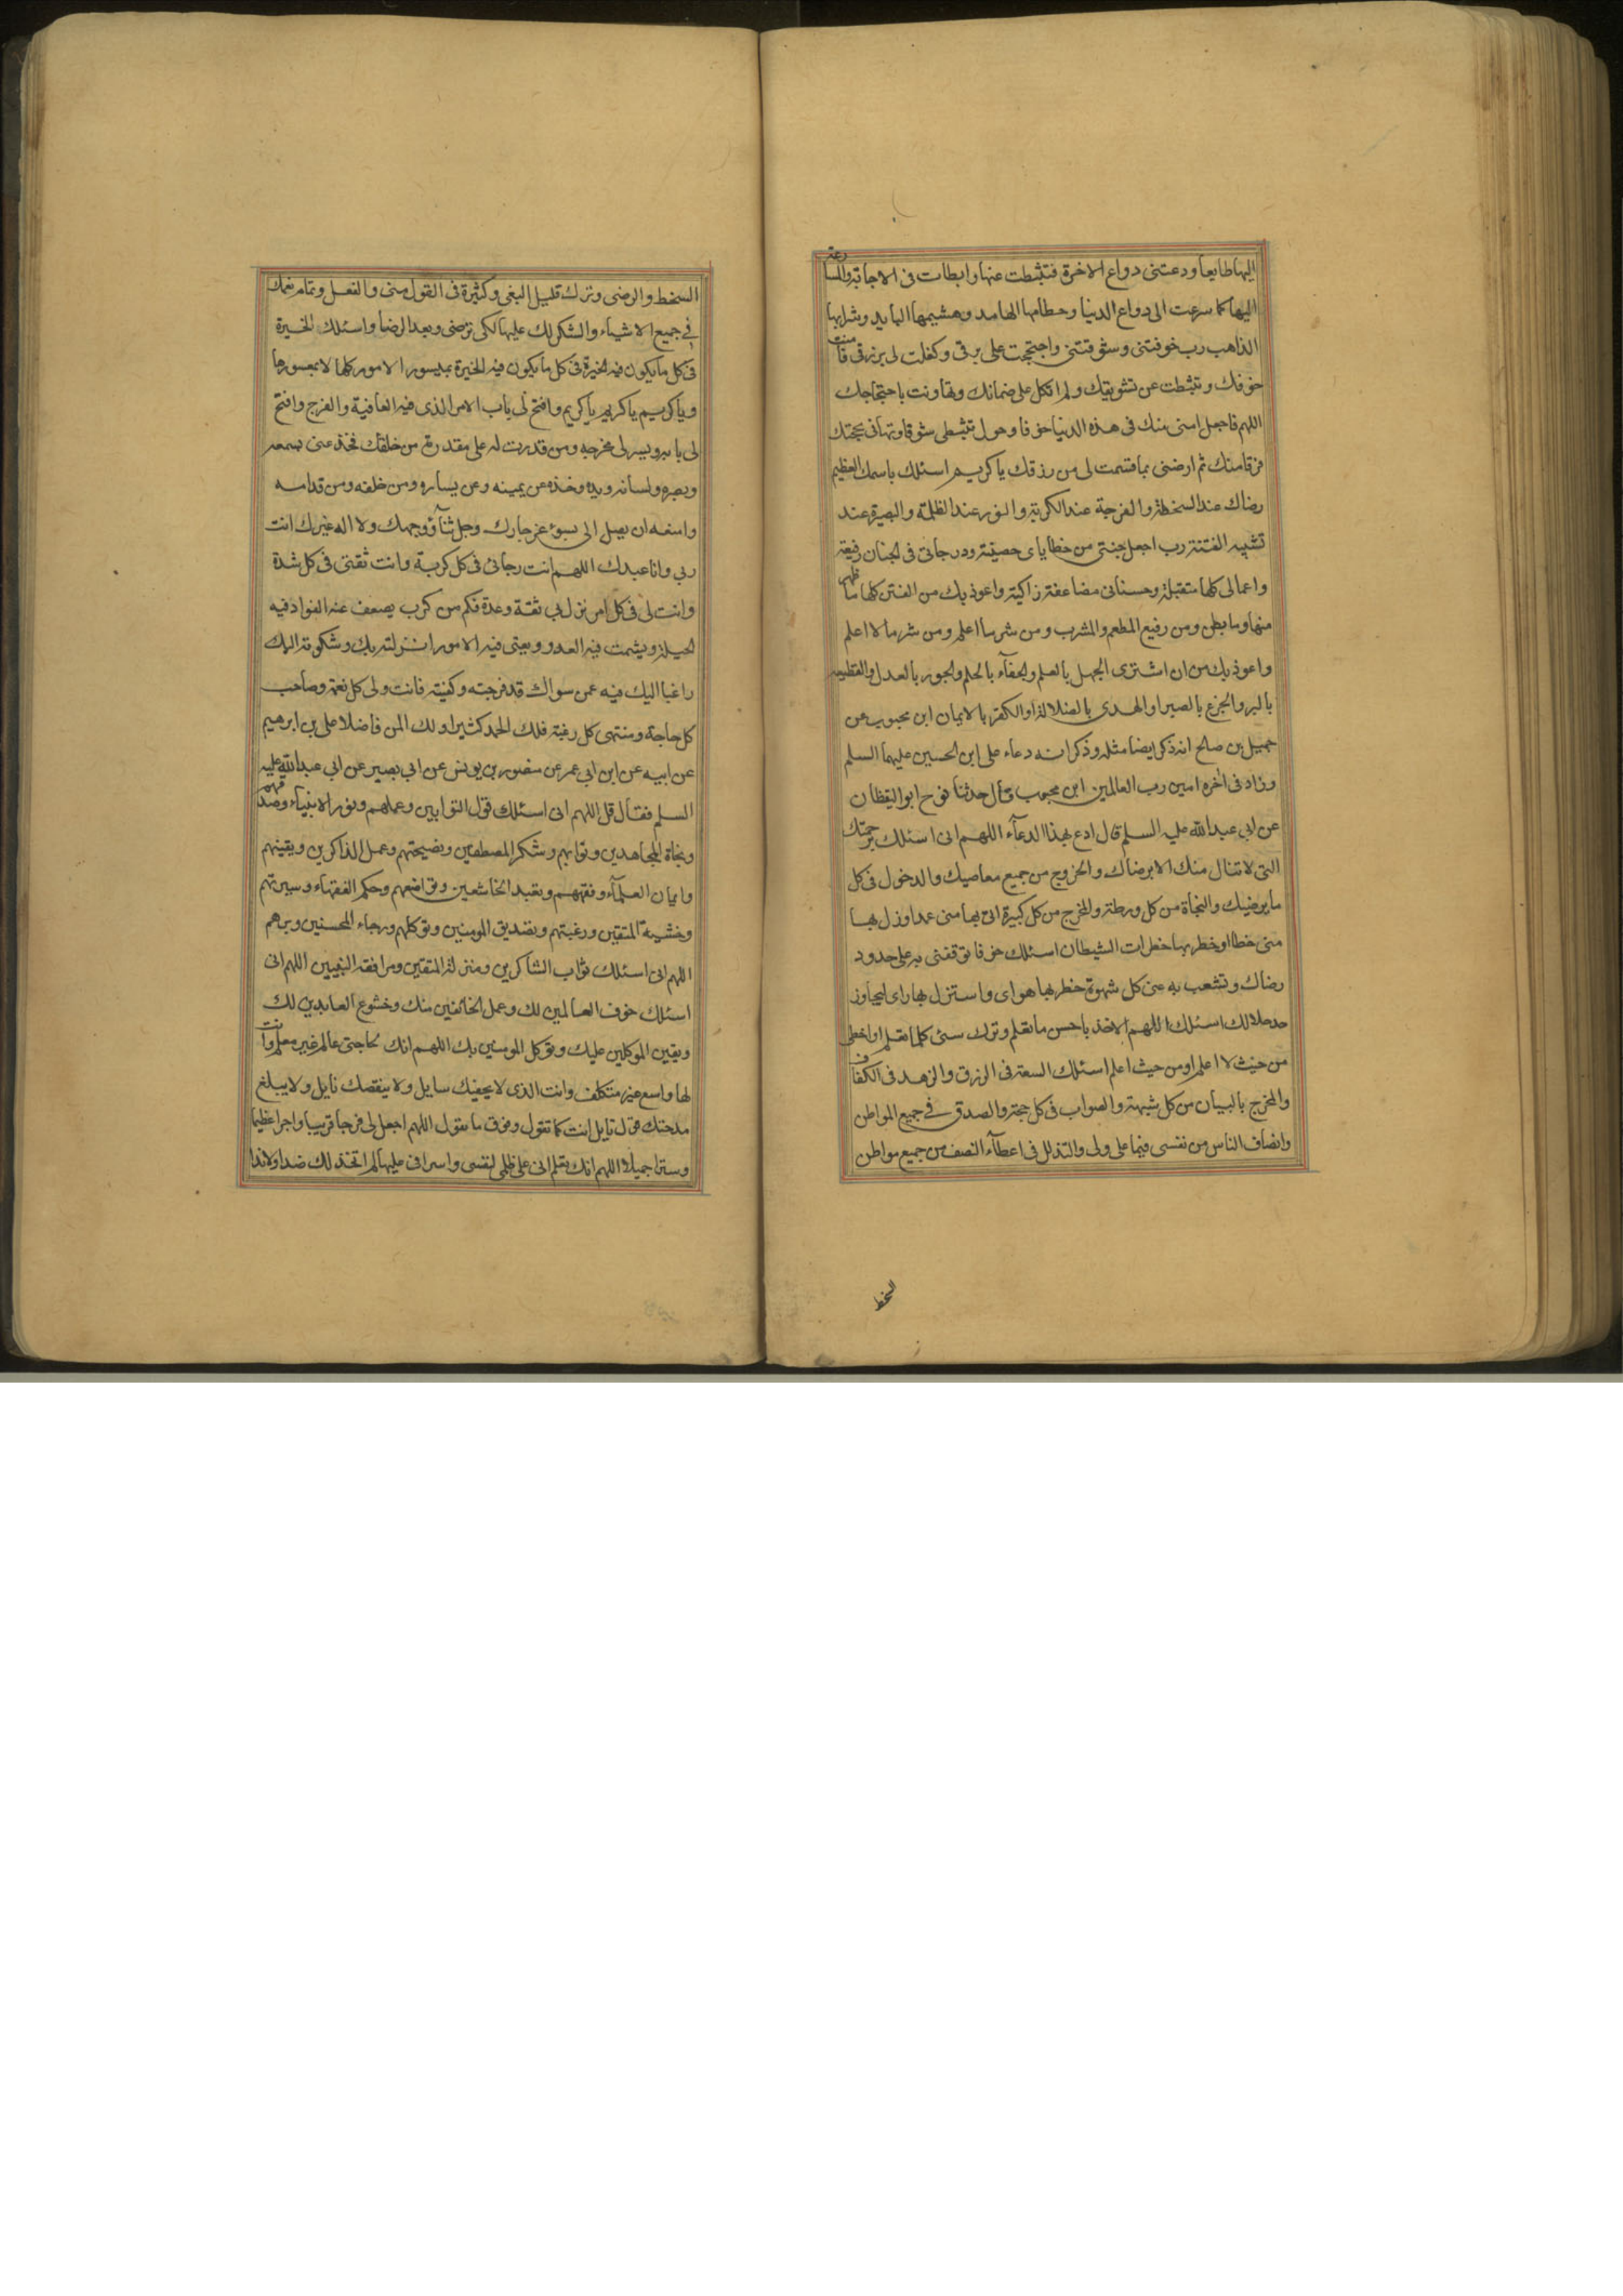 اليها طايعا ودعتنى دواع الاخرة فتثبطت عنها وابطات فى الاجابة والمسارعة
اليها كما سرعت الى دواع الدنيا وحطامها الهامد وهشيمها البايد وشرابها
الذاهب رب خوفتنى وشوقتنى واحتججت على برقى وكفلت لى برزقى فامنت
خوفك وتثبطت عن تشويقك ولم اتكل على ضمانك وتهاونت باحتجاجك
اللهم فاجعل امنى منك فى هذه الدنيا خوفا وحول تثبطى شوقا وتهاونى بحجتك
فرقا منك ثم ارضنى بما قسمت لى من رزقك يا كريم اسئلك باسمك العظيم
رضاك عند السخطة والفرجة عند الكربة والنور عند الظلمة والبصيرة عند
تشبيه الفتنة رب اجعل جنتى من خطاياى حصينة ودرجاتى فى الجنان رفيعة
واعمالى كلها متقبلة وحسناتى مضاعفة زاكية واعوذ بك من الفتن كلها ما ظهر
منها وما بطن ومن رفيع المطعم والمشرب ومن شر ما اعلم ومن شر ما لا اعلم
واعوذ بك من ان اشترى الجهل بالعلم والجفاء بالحلم والجور بالعدل والقطيعة
بالبر والجزع بالصبر او الهدى بالضلالة او الكفر بالايمان ابن محبوب عن
جميل بن صالح انه ذكر ايضا مثله وذكر انه دعاء على ابن الحسين عليهما السلم
وزاد فى اخره امين رب العالمين ابن محبوب قال حدثنا نوح ابو اليقظان
عن ابى عبد الله عليه السلم قال ادع بهذا الدعآء اللهم انى اسئلك برحمتك
التى لا تنال منك الا برضاك والخروج من جميع معاصيك والدخول فى كل
ما يرضيك والنجاة من كل ورطة والمخرج من كل كبيرة اتى بها منى عمد او زل بها
منى خطا او خطر بها خطرات الشيطان اسئلك خوفا توقفنى به على حدود
رضاك وتشعب به عنى كل شهوة خطر بها هواى واستزل بها راى ليجاوز
حد حلالك اسئلك اللهم الاخذ باحسن ما تعلم وترك سئ كلما تعلم او اخطئ
من حيث لا اعلم او من حيث اعلم اسئلك السعة فى الرزق والزهد فى الكفاف
والمخرج بالبيان من كل شبهة والصواب فى كل حجة والصدق فى جميع المواطن
وانصاف الناس من نفسى فيما على ولى والتذلل فى اعطآء النصف من جميع مواطن
السخط
السخط والرضى وترك قليل البغى وكثيرة فى القول منى والفعل وتمام نعمك
فى جميع الاشياء والشكر لك عليها لكى ترضى وبعد الرضا واسئلك الخيرة
فى كل ما يكون فيه الخيرة فى كل ما يكون فيه الخيرة بميسور الامور كلها لا بمعسورها
ويا كريم يا كريم يا كريم وافتح لى باب الامر الذى فيه العافية والفرج وافتح
لى بابه ويسر لى مخرجه ومن قدرت له على مقدرة من خلقك فخذ عنى بسمعه
وبصره ولسانه ويده وخذه عن يمينه وعن يساره ومن خلفه ومن قدامه
وامنعه ان يصل الى بسوء عز جارك وجل ثنآؤ وجهك ولا اله غيرك انت
ربى وانا عبدك اللهم انت رجائى فى كل كربة وانت ثقتى فى كل شدة
وانت لى فى كل امر نزل بى ثقة وعدة فكم من كرب يضعف عنه الفواد فيه
الحيلة ويشمت فيه العدو وبعتى فيه الامور انزلته بك وشكوته اليك
راغبا اليك فيه عمن سواك قد فرجته وكفيته فانت ولى كل نعمة وصاحب
كل حاجة ومنتهى كل رغبة فلك الحمد كثيرا ولك المن فاضلا على بن ابرهيم
عن ابيه عن ابن ابى عمر عن منصور بن يونس عن ابى بصير عن ابى عبد الله عليه
السلم فقال قل اللهم انى اسئلك قول التوابين وعملهم ونور الانبياء وصدقهم
ونجاة المجاهدين وثوابهم وشكر المصطفين ونصيحتهم وعمل الذاكرين ويقينهم
وايمان العلمآء وفقههم وتعبد الخاشعين وتواضعهم وحكم الفقهاء وسيرتهم
وخشية المتقين ورغبتهم وتصديق المومنين وتوكلهم ورجاء المحسنين وبرهم
اللهم انى اسئلك ثواب الشاكرين ومنزلة المتقين ومرافقة النبيين اللهم انى
اسئلك خوف العالمين لك وعمل الخائفين منك وخشوع العابدين لك
ويقين الموكلين عليك وتوكل المومنين بك اللهم انك بحاجتى عالم غير معلم وانت
لها واسع غير متكلف وانت الذى لا يحفيك سايل ولا ينقصك نايل ولا يبلغ
مدحتك قول قايل انت كما تقول وفوق ما نقول اللهم اجعل لى فرجا قريبا واجرا عظيما
وسترا جميلا اللهم انك تعلم انى على ظلمى لنفسى واسرافى عليها لم اتخذ لك ضدا ولا ندا